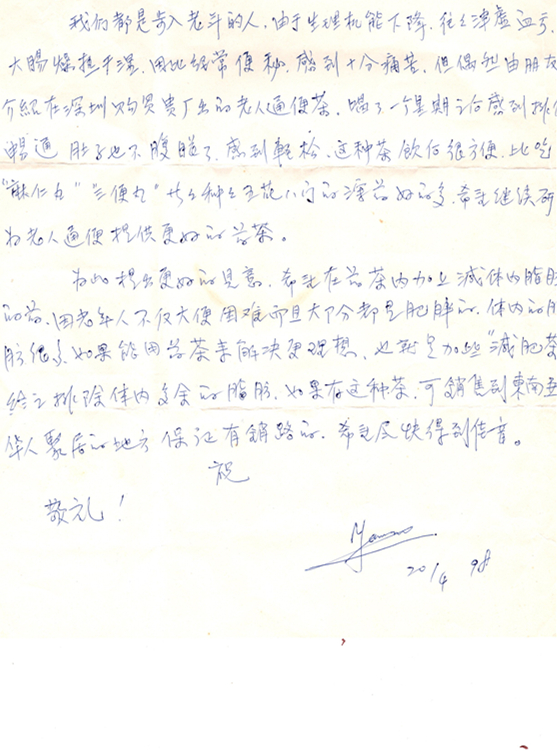 我们都是方入老斗的人，由于生理机能下降，往往津虚血亏，
大腸燥热干涩，因此经常便秘，感到十分痛苦，但偶然由朋友
介紹在深圳购买贵厂出的老人通便茶，喝了一个星期之后感到排便
暢通，肚子也不腹脹了，感到輕松，这种茶飲何很方便，比吃
"麻仁丸" "三便丸" 之五花八门的薬好的多，希望继续研
为老人通便提供更好的茶。
为此提出更好的见意，希望在茶内加些减体内脂肪
的，因老年人不仅大便困难而且大部分都是肥胖的，体内的脂
肪很多，如果能用茶来解决更理想，也就是加些"减肥茶
给之排除体内多余的脂肪，如果有这种茶，可銷售到東南亚
华人聚居的地方保证有銷路的，希望尽快得到佳音。
祝
敬礼！
20/4 98